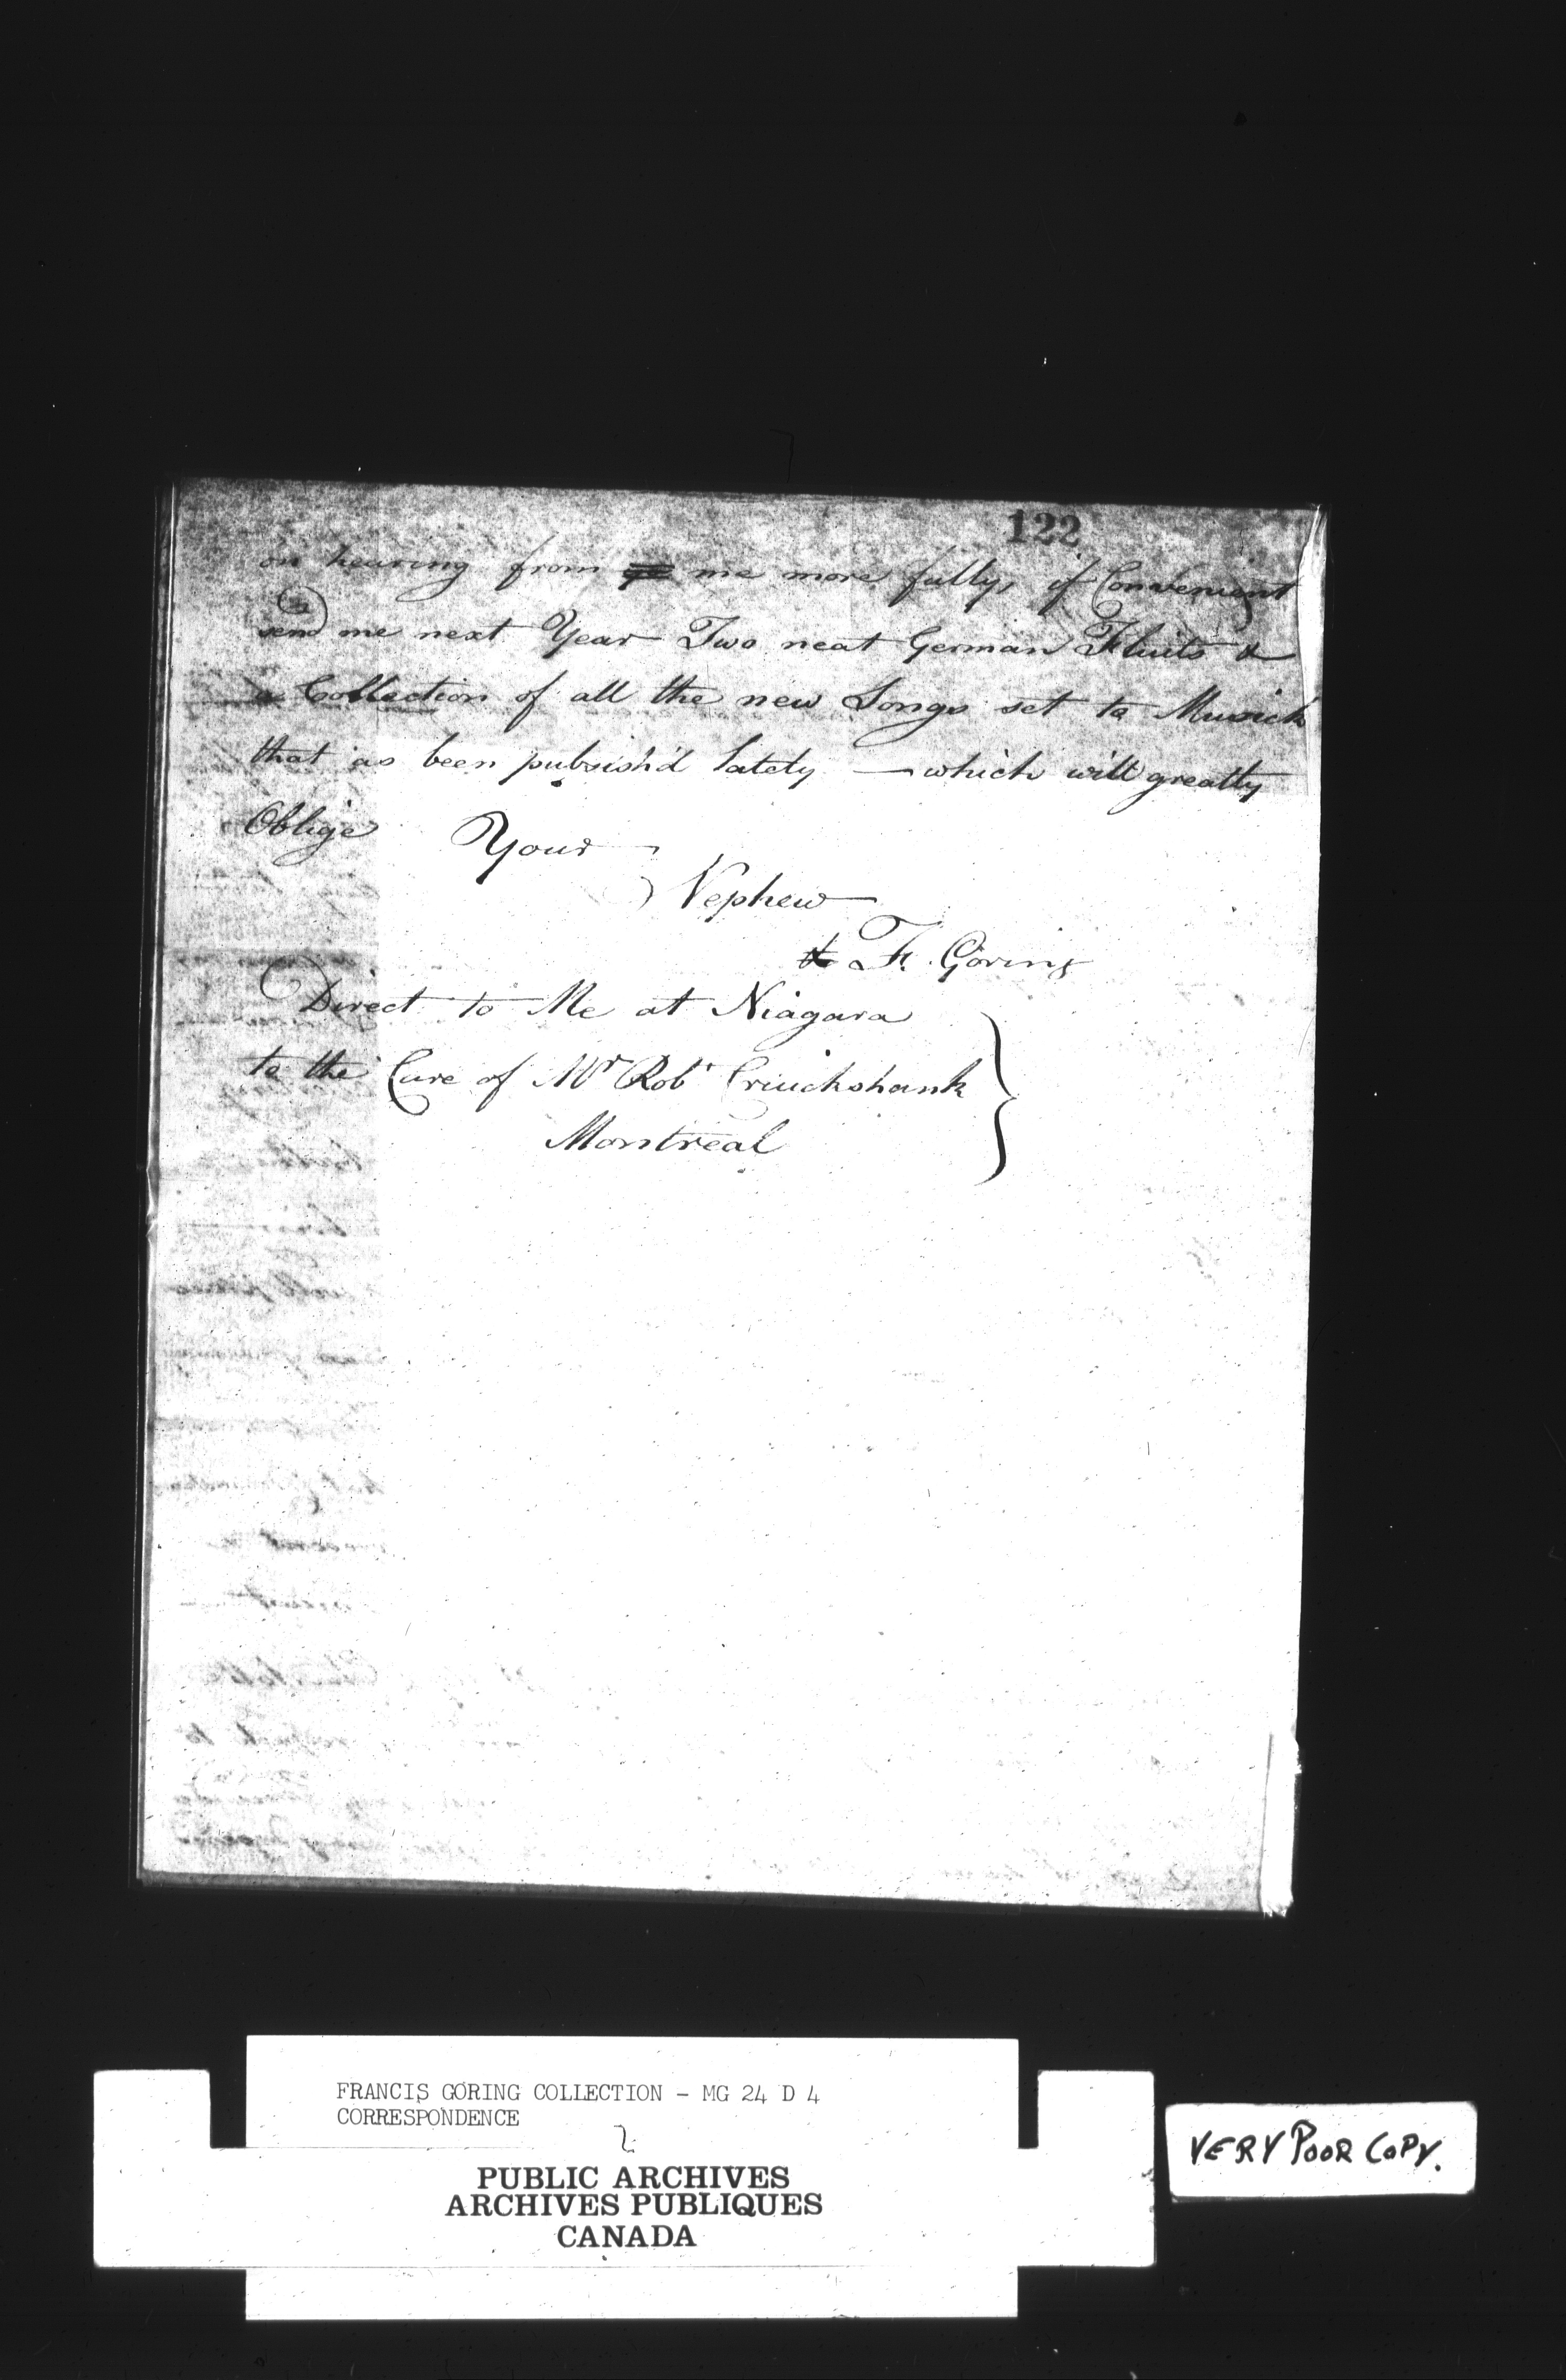 122
on hearing from me more fully, if Convenient
send me next Year Two neat German Fluits &
a Collection of all the new Songs set to Musick
that as been pubsish'd lately — which will greatly
Oblige Your
Nephew
F. Goring
Direct to Me at Niagara
to the Care of Mr Robt Cruickshank
Montreal
FRANCIS GORING COLLECTION - MG 24 D 4
CORRESPONDENCE
2
PUBLIC ARCHIVES
ARCHIVES PUBLIQUES
CANADA
VERY POOR COPY.